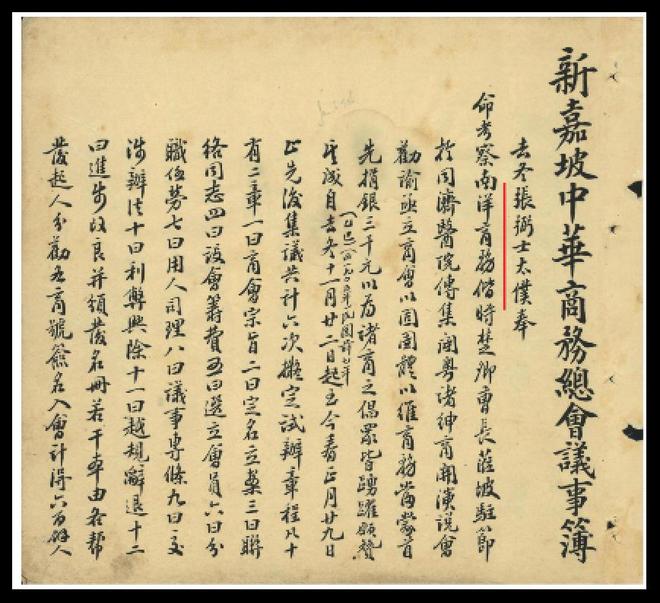 新嘉坡中華商務總會議事簿
去冬張弼士太僕奉
命考察南洋商務偕時楚卿曹長蒞坡駐節
於同濟醫院傳集閩粵諸紳商開演說會
勸諭亟立商會以固團體以維商務當蒙首
先捐銀三千元以為諸商之倡眾皆踴躍願贊
其成自去冬十一月廿二日起至今春正月廿九日
止先後集議共計六次擬定試辦章程凡十
有二章一曰商會宗旨二曰定名立案三曰聯
絡同志四曰設會籌費五曰選立會員六曰分
職任勞七曰用人司理八曰議事專條九曰交
涉辦法十曰利弊興除十一曰越規辭退十二
曰進步改良并須發名冊若干本由各幫
發起人分勸各商號簽名入會計得六百餘人